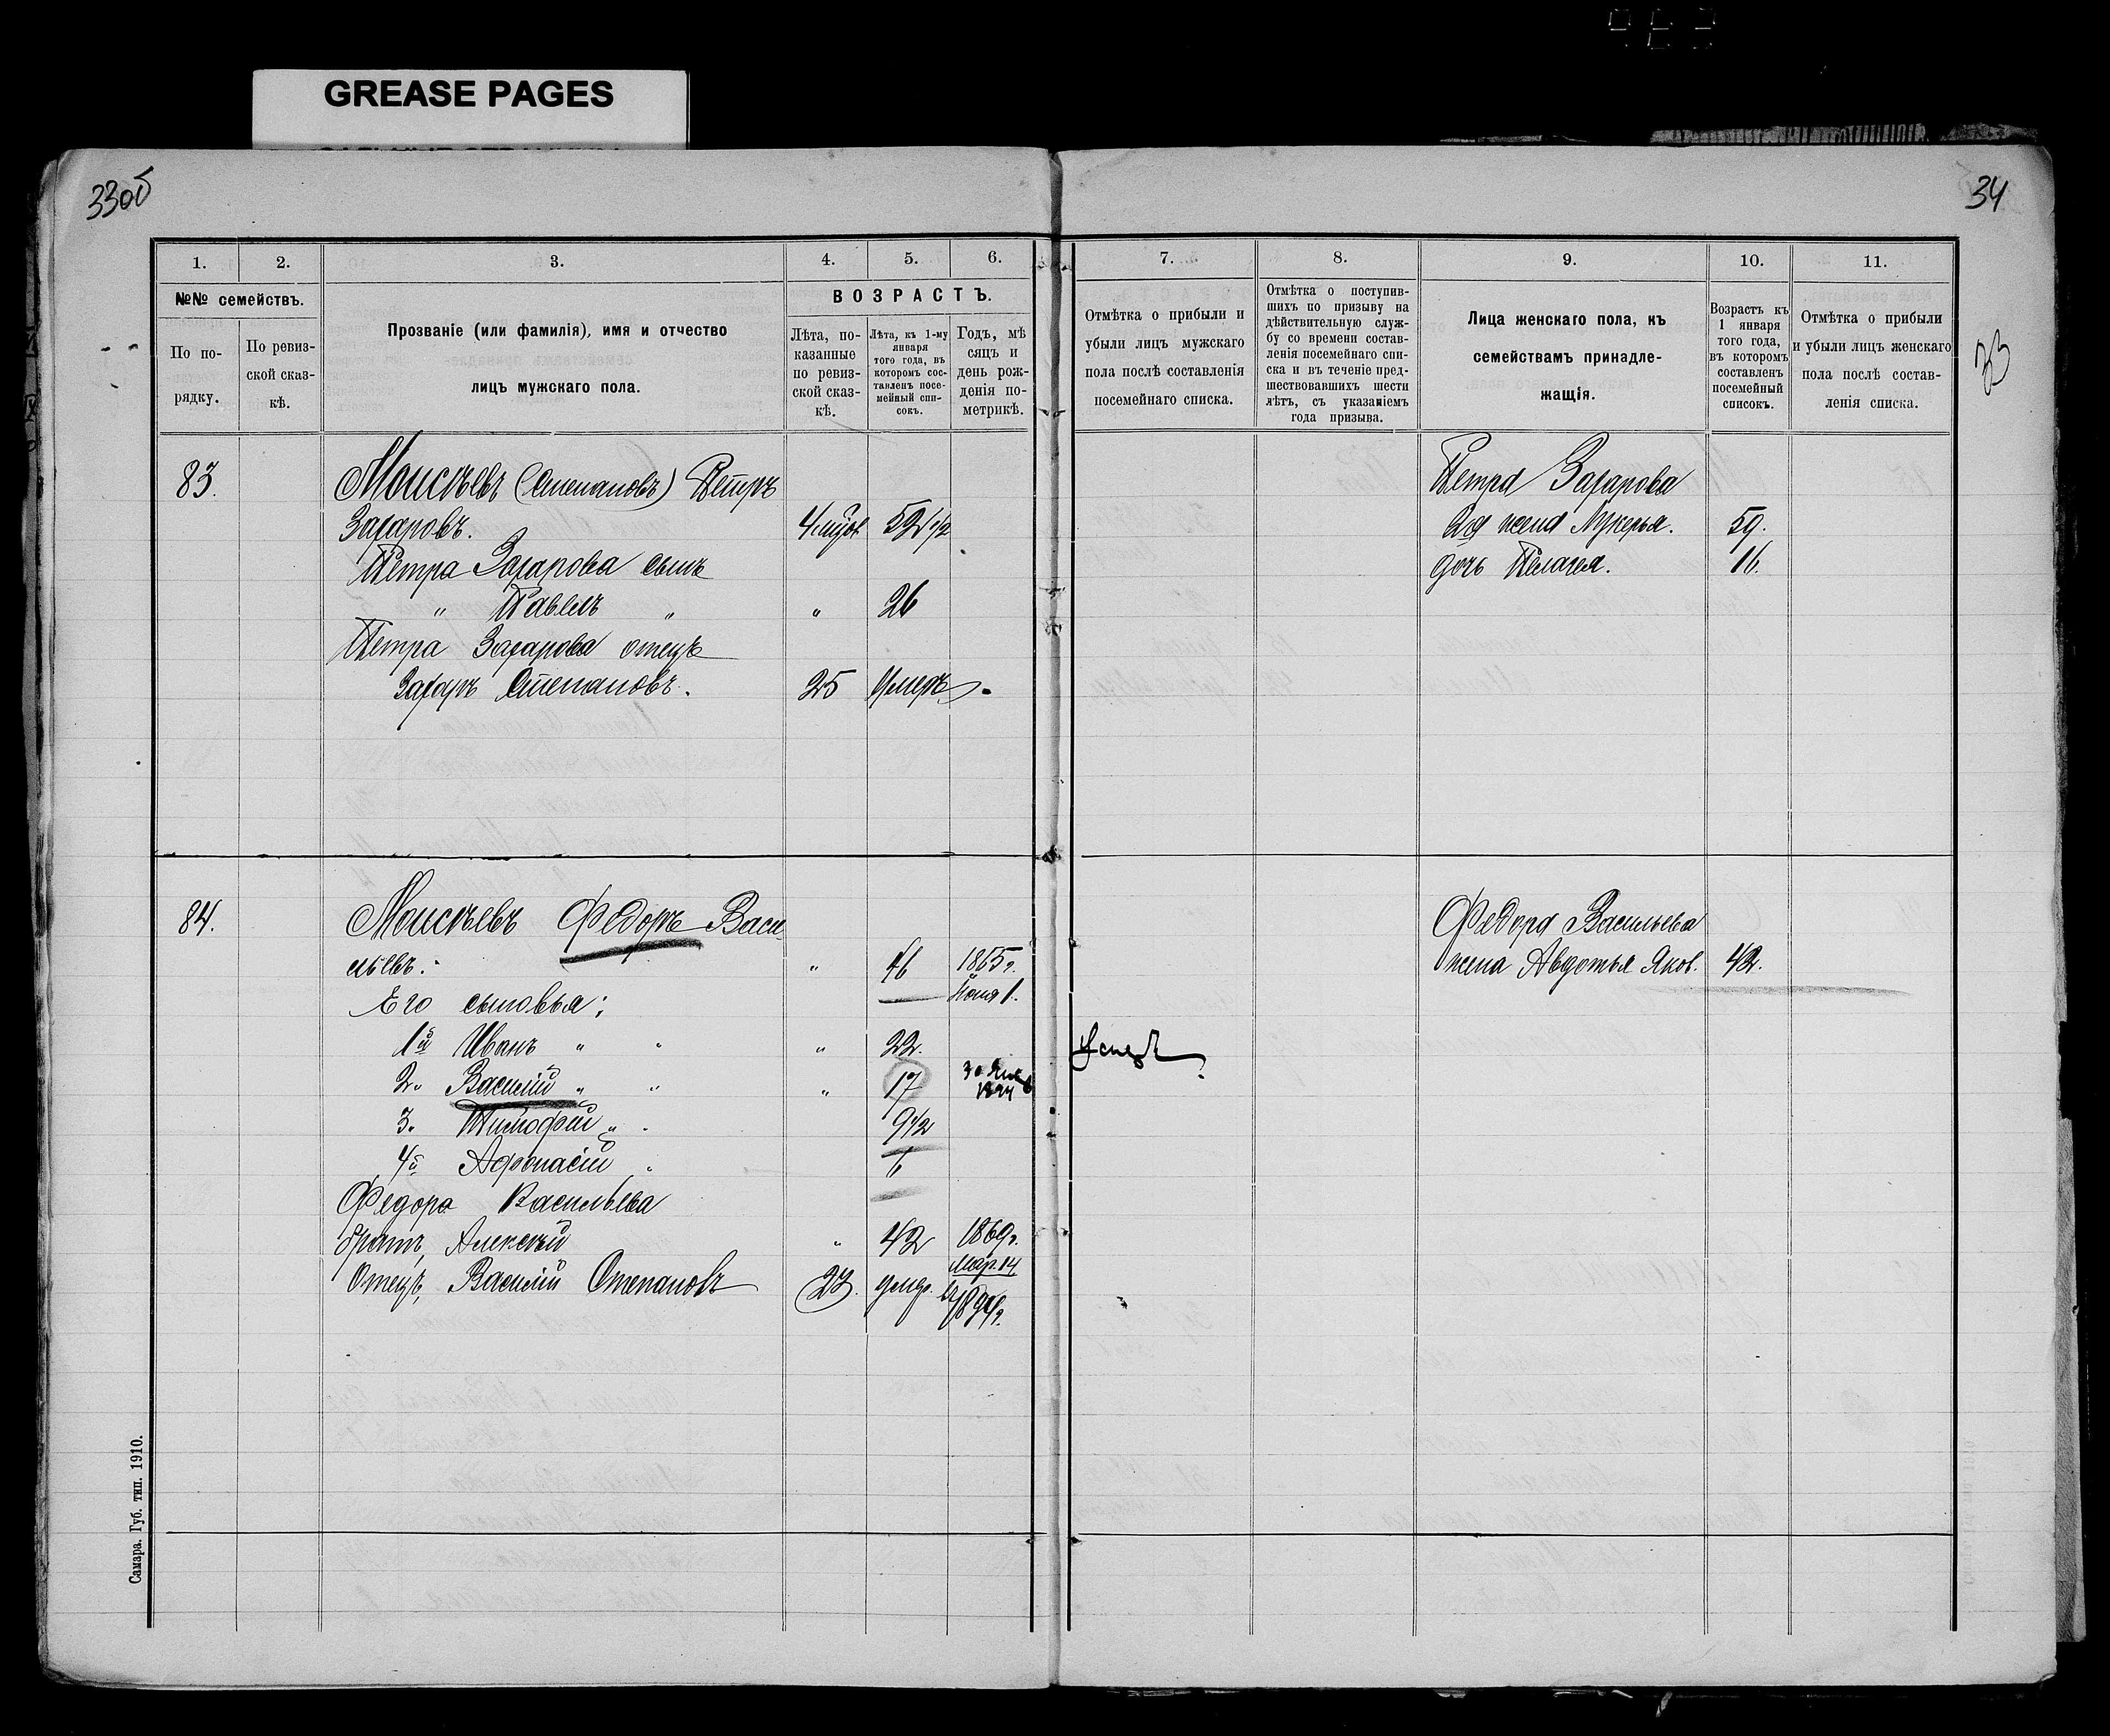 GREASE PAGES
33об
34
33
1.
2.
3.
4.
5.
6.
7.
8.
9.
10.
11.
№№ семействъ.
По по-
рядку.
По ревиз-
ской сказ-
кѣ.
Прозваніе (или фамилія), имя и отчество
лицъ мужскаго пола.
ВОЗРАСТЪ.
Лѣта, по-
казанные
по ревиз-
ской сказ-
кѣ.
Лѣта, къ 1-му
января
того года, въ
которомъ сос-
тавленъ посе-
мейный спи-
сокъ.
Годъ, мѣ
сяцъ и
день рож-
денія по-
метрикѣ.
Отмѣтка о прибыли и
убыли лицъ мужскаго
пола послѣ составленія
посемейнаго списка.
Отмѣтка о поступив-
шихъ по призыву на
дѣйствительную служ-
бу со времени состав-
ленія посемейнаго спи-
ска и въ теченіе пред-
шествовавшихъ шести
лѣтъ, съ указаніемъ
года призыва.
Лица женскаго пола, къ
семействамъ принадле-
жащія.
Возрастъ къ
1 января
того года,
въ которомъ
составленъ
посемейный
списокъ.
Отмѣтка о прибыли
и убыли лицъ женскаго
пола послѣ состав-
ленія списка.
83. Моисѣевъ (Степановъ) Петръ
Захаровъ. 52 1/2
Петра Захарова сынъ
" Павелъ " " 26
Петра Захарова отецъ
Захаръ Степановъ. 25 Умеръ
Петра Захарова
жена Лукерья. 59.
дочь Пелагея. 16.
84. Моисѣевъ Федоръ Васи
льевъ. " 46 1865 г.
Іюня 1.
Его сыновья:
1й Иванъ " " " 22. Умеръ
2. Василій " " " 17 30 Янв
1894
3. Тимофей " " 9 1/2
4й Афонасій " 6
Федора Васильева
братъ, Алексѣй " 42 1869 г.
Мар. 14
Отецъ, Василій Степановъ 23. умер. въ
Федора Васильева
жена Авдотья Яков. 42.
Самара. Губ. тип. 1910.